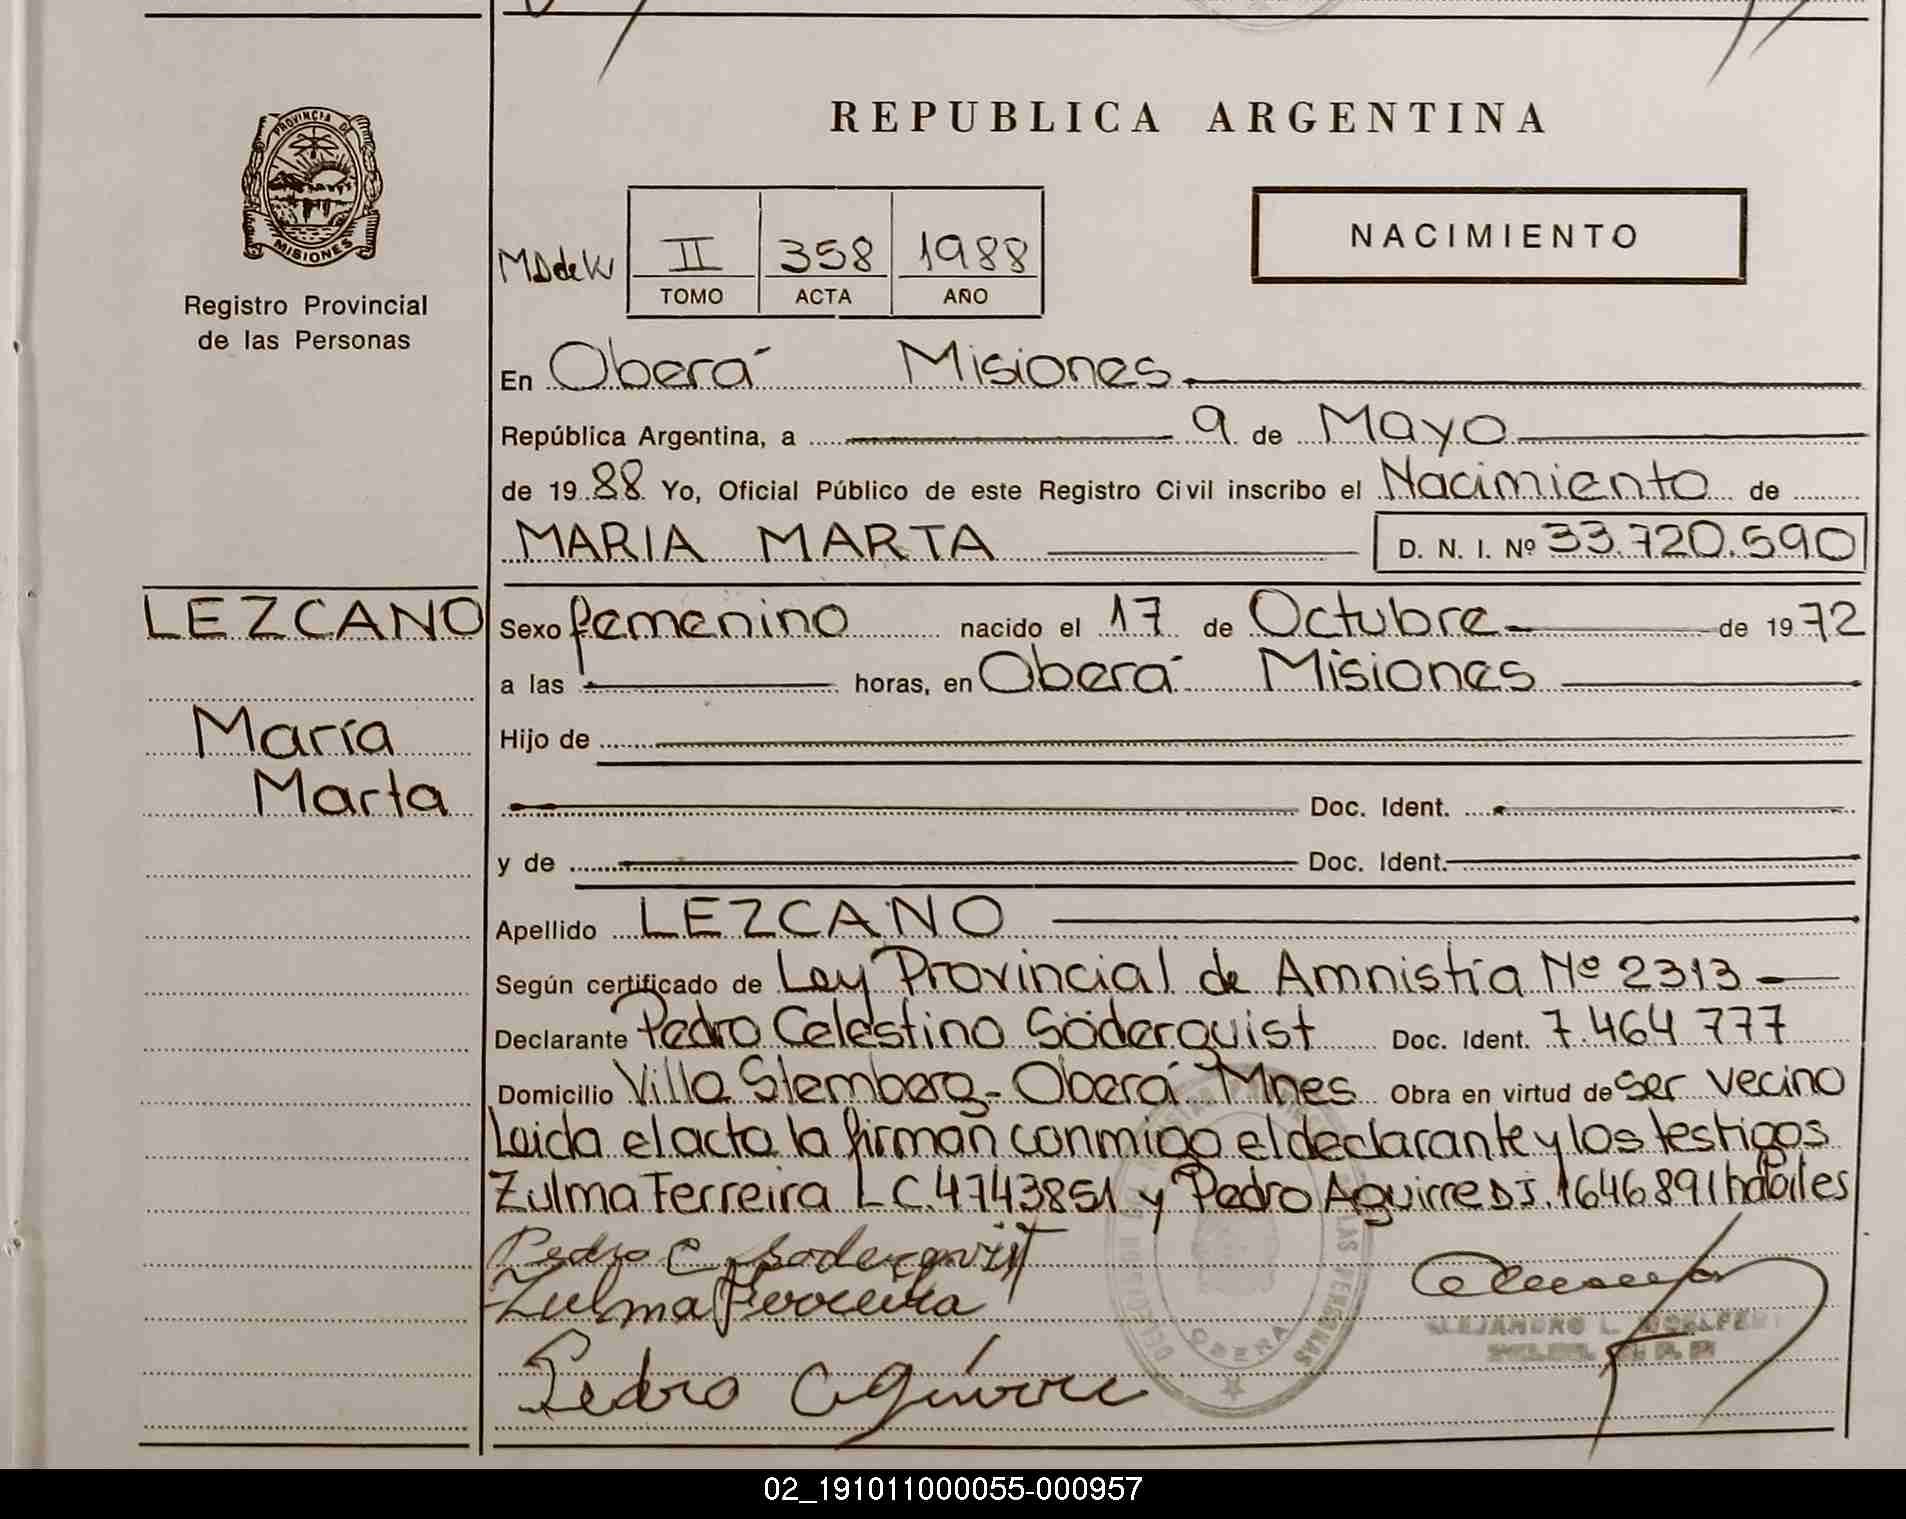 PROVINCIA DE
MISIONES
Registro Provincial
de las Personas
REPUBLICA ARGENTINA
NACIMIENTO
MD de W
II 358 1988
TOMO ACTA AÑO
En Oberá Misiones
República Argentina, a 9 de Mayo
de 1988 Yo, Oficial Público de este Registro Civil inscribo el Nacimiento de
MARIA MARTA D. N. I. Nº 33.720.590
LEZCANO
María
Marta
Sexo femenino nacido el 17 de Octubre de 1972
a las horas, en Oberá Misiones
Hijo de
Doc. Ident.
y de Doc. Ident.
Apellido LEZCANO
Según certificado de Ley Provincial de Amnistía Nº 2313
Declarante Pedro Celestino Söderquist Doc. Ident. 7.464 777
Domicilio Villa Stemberg - Oberá Mnes Obra en virtud de ser vecino
Leida el acta la firman conmigo el declarante y los testigos
Zulma Ferreira L C. 4743851 y Pedro Aguirre DJ. 1646891 habiles
Pedro C Soderqvist
Zulma Ferreira
Pedro Aguirre
OBERA
ALEJANDRO L.
02_191011000055-000957